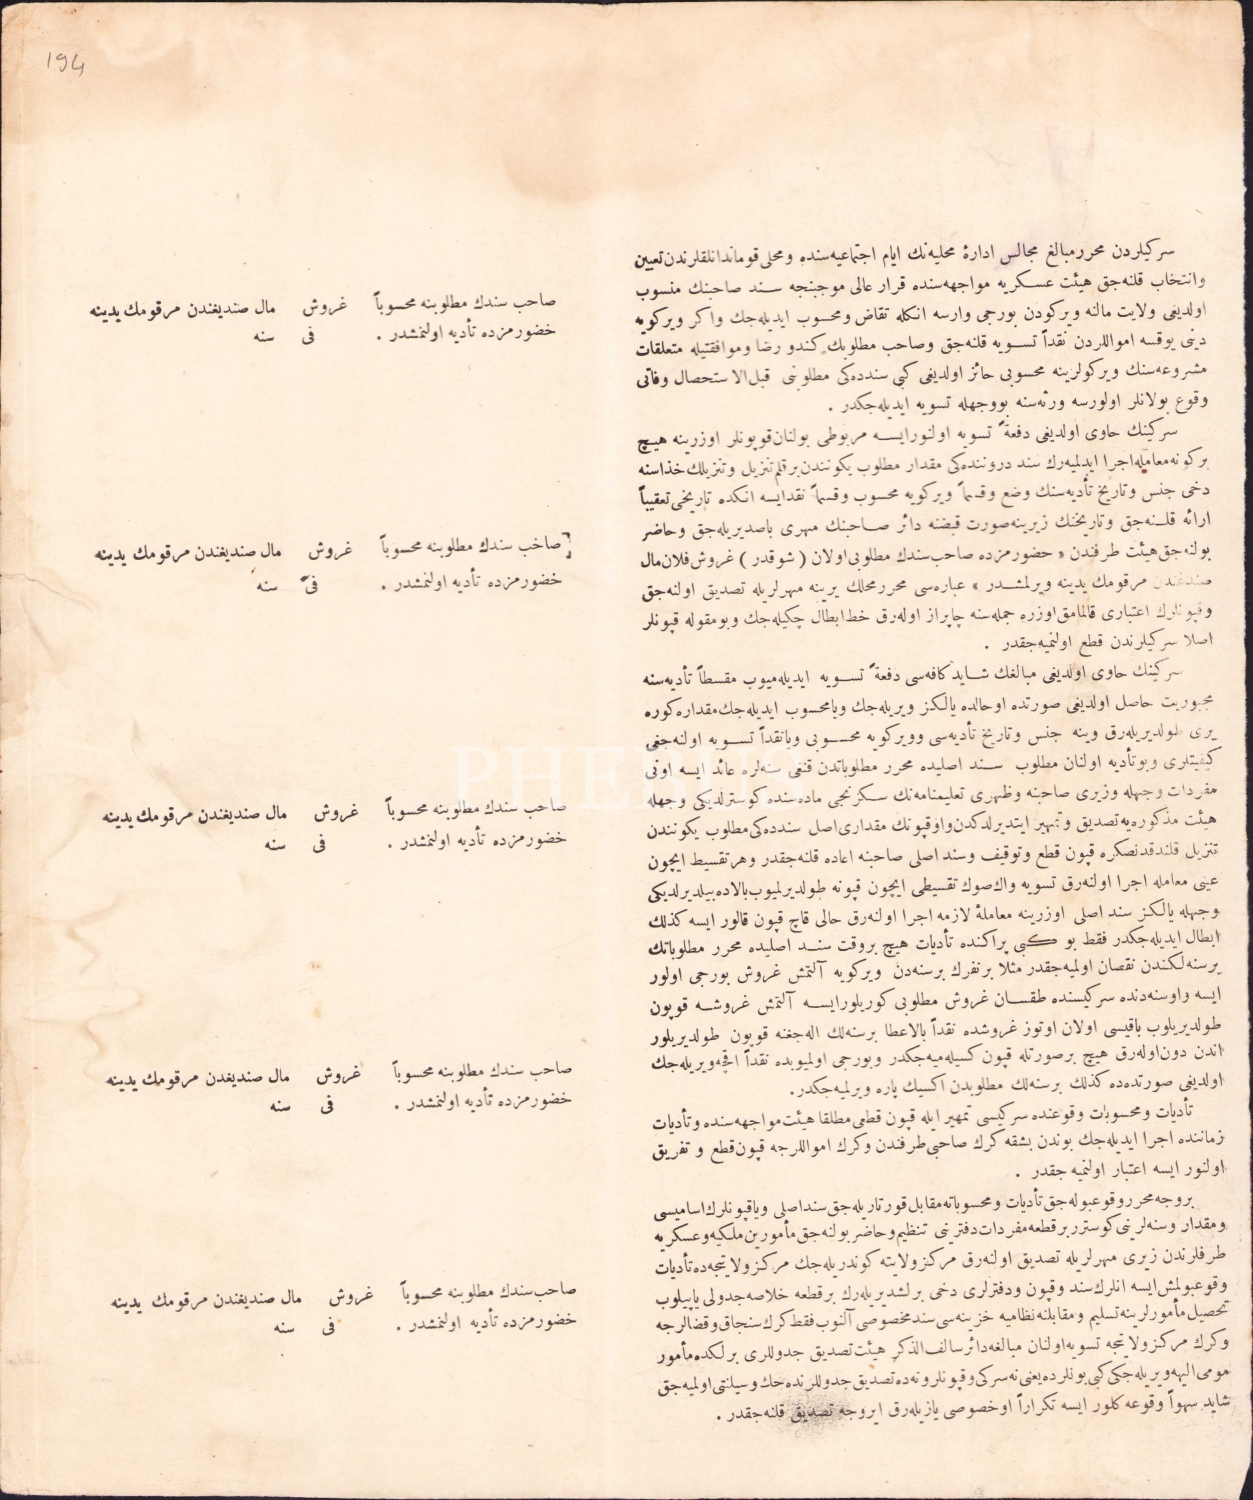 194
سركيلردن محرر مبالغ مجالس ادارۀ محليه‌نك ايام اجتماعيه‌سنده و محلى قوماندانلقلرندن تعيين
وانتخاب قلنه‌جق هيئت عسكريه مواجهه‌سنده قرار عالى موجبنجه سند صاحبنك منسوب
اولديغى ولايت مالنه ويركودن بورجى وارسه انكله تقاض ومحسوب ايديله‌جك واكر ويركويه
دينى يوقسه امواللردن نقداً تسويه قلنه‌جق وصاحب مطلوبك كندو رضا وموافقتيله متعلقات
مشروعه‌سنك ويركولرينه محسوبى حائز اولديغى كبى سندده‌كى مطلوبنى قبل الاستحصال وفاتى
وقوع بولانلر اولورسه ورثه‌سنه بووجهله تسويه ايديله‌جكدر .
سركينك حاوى اولديغى دفعةً تسويه اولنورايسه مربوطى بولنان قوپونلر اوزرينه هيچ
بركونه معامله اجرا ايدلميه‌رك سند دروننده‌كى مقدار مطلوب يكونندن برقلم تنزيل وتنزيلك خذاسنه
دخى جنس وتاريخ تأديه‌سنك وضع وقسماً ويركويه محسوب وقسماً نقدايسه انكده تاريخى تعقيباً
ارائه قلنه‌جق وتاريخنك زيرينه صورت قبضنه دائر صاحبنك مهرى باصديريله‌جق وحاضر
بولنه‌جق هيئت طرفندن « حضورمزده صاحب سندك مطلوبى اولان ( شو قدر ) غروش فلان مال
صندغندن مرقومك يدينه ويرلمشدر » عباره‌سى محرر محلك يرينه مهرلريله تصديق اولنه‌جق
وقپونلرك اعتبارى قالمامق اوزره جمله‌سنه چاپراز اوله‌رق خط ابطال چكيله‌جك وبومقوله قپونلر
اصلا سركيلرندن قطع اولنميه‌جقدر .
سركينك حاوى اولديغى مبالغك شايد كافه‌سى دفعةً تسويه ايديله‌ميوب مقسطاً تأديه‌سنه
مجبوريت حاصل اولديغى صورتده اوحالده يالكز ويريله‌جك ويامحسوب ايديله‌جك مقداره كوره
يرى طولديريله‌رق وينه جنس وتاريخ تأديه‌سى وويركويه محسوبى ويانقداً تسويه اولنه‌جغى
كيفيتلرى وبوتأديه اولنان مطلوب سند اصليده محرر مطلوباتدن قنغى سنه‌لره عائد ايسه اونى
مفردات وجهله وزيرى صاحبنه وظهرى تعليمنامه‌نك سكزنجى ماده‌سنده كوسترلديكى وجهله
هيئت مذكوره‌يه تصديق وتمهير ايتديرلدكدن واوقپونك مقدارى اصل سندده‌كى مطلوب يكونندن
تنزيل قلندقدنصكره قپون قطع وتوقيف وسند اصلى صاحبنه اعاده قلنه‌جقدر وهرتقسيط ايچون
عينى معامله اجرا اولنه‌رق تسويه واك صوك تقسيطى ايچون قپونه طولديرلميوب بالاده بيلديرلديكى
وجهله يالكز سند اصلى اوزرينه معاملۀ لازمه اجرا اولنه‌رق حالى قاچ قپون قالور ايسه كذلك
ابطال ايديله‌جكدر فقط بو كبى پراكنده تأديات هيچ بروقت سند اصليده محرر مطلوباتك
برسنه‌لكندن نقصان اولميه‌جقدر مثلا برنفرك برسنه‌دن ويركويه آلتمش غروش بورجى اولور
ايسه واوسنه‌دنده سركيسنده طقسان غروش مطلوبى كوريلورايسه آلتمش غروشه قوپون
طولديريلوب باقيسى اولان اوتوز غروشده نقداً بالاعطا برسنه‌لك اله‌جغنه قوپون طولديريلور
اندن دون اوله‌رق هيچ برصورتله قپون كسيله‌ميه‌جكدر وبورجى اولميوبده نقداً اقچه ويريله‌جك
اولديغى صورتده‌ده كذلك برسنه‌لك مطلوبدن اكسيك پاره ويرلميه‌جكدر.
تأديات ومحسوبات وقوعنده سركيسى تمهير ايله قپون قطعى مطلقا هيئت مواجهه‌سنده وتأديات
زماننده اجرا ايديله‌جك بوندن بشقه كرك صاحبى طرفندن وكرك امواللرجه قپون قطع و تفريق
اولنور ايسه اعتبار اولنميه جقدر .
بروجه محرر وقوعبوله‌جق تأديات ومحسوباته مقابل قورتاريله‌جق سند اصلى وياقپونلرك اساميسى
ومقدار وسنه‌لرينى كوسترر برقطعه مفردات دفترينى تنظيم وحاضر بولنه‌جق مأمورين ملكيه وعسكريه
طرفلرندن زيرى مهرلريله تصديق اولنه‌رق مركز ولايته كوندريله‌جك مركز ولايتجه‌ده تأديات
وقوعبولمش ايسه انلرك سند وقپون ودفترلرى دخى برلشديريله‌رك برقطعه خلاصه جدولى ياپيلوب
تحصيل مأمورلرينه تسليم ومقابلنه نظاميه خزينه‌سى سند مخصوصى آلنوب فقط كرك سنجاق وقضالرجه
وكرك مركز ولايتجه تسويه اولنان مبالغه دائر سالف الذكر هيئت تصديق جدوللرى برلكده مأمور
مومى اليهه ويريله‌جكى كبى بونلرده يعنى نه سركى وقپونلر ونه‌ده تصديق جدوللرنده حك وسيلنتى اولميه‌جق
شايد سهواً وقوعه كلور ايسه تكراراً اوخصوصى يازيله‌رق ايروجه تصديق قلنه‌جقدر .
صاحب سندك مطلوبنه محسوباً غروش مال صنديغندن مرقومك يدينه
حضورمزده تأديه اولنمشدر . فى سنه
صاحب سندك مطلوبنه محسوباً غروش مال صنديغندن مرقومك يدينه
حضورمزده تأديه اولنمشدر . فى سنه
صاحب سندك مطلوبنه محسوباً غروش مال صنديغندن مرقومك يدينه
حضورمزده تأديه اولنمشدر . فى سنه
صاحب سندك مطلوبنه محسوباً غروش مال صنديغندن مرقومك يدينه
حضورمزده تأديه اولنمشدر . فى سنه
صاحب سندك مطلوبنه محسوباً غروش مال صنديغندن مرقومك يدينه
حضورمزده تأديه اولنمشدر . فى سنه